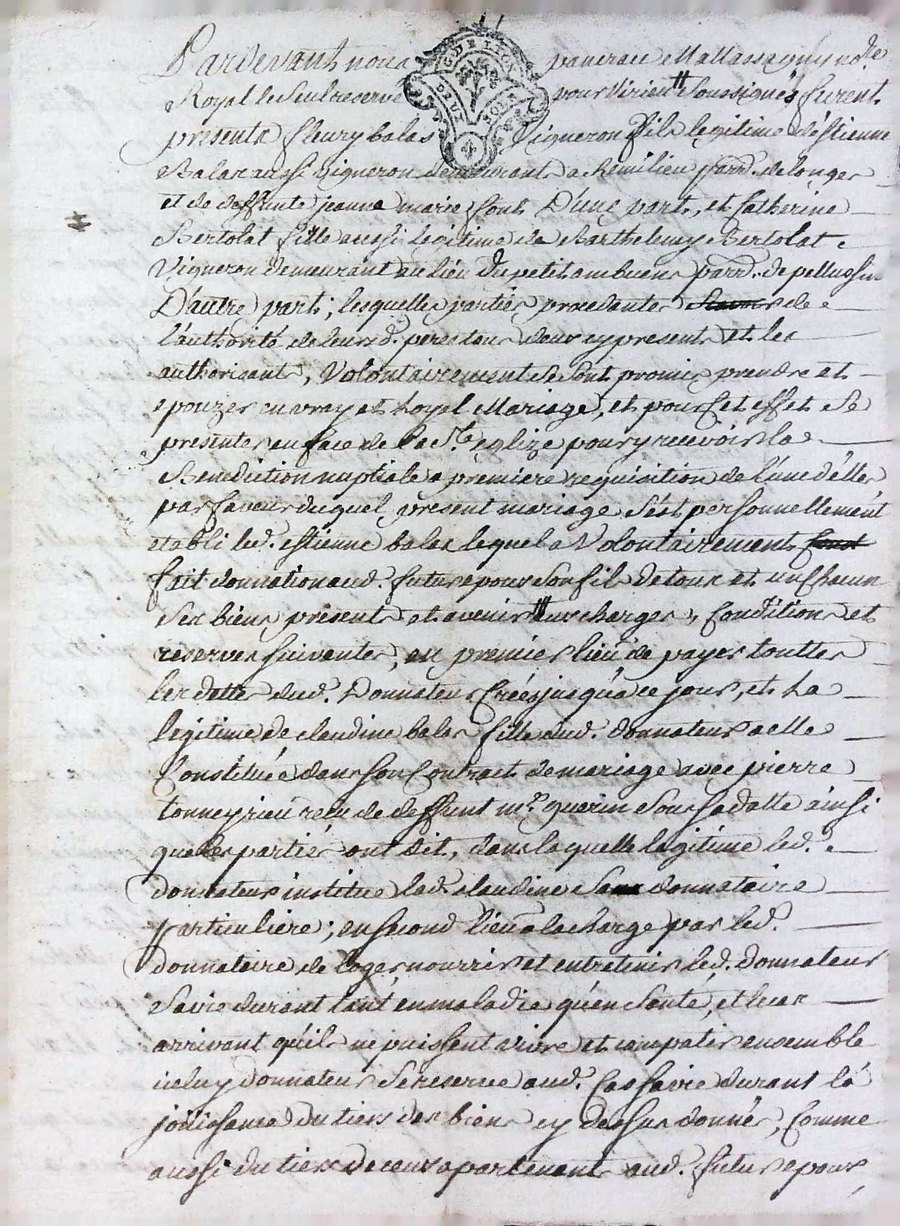 Pardevant nous pancrace Mattassagny no.re
Royal le Seul reservé pour Virieu Soussigné furent
presents fleury balas Vigneron fils legitime d'estienne
Balas aussi Vigneron demeurant a Chemilieu parr. de longes
et de deffunte jeanne marie font D'une part, et Catherine
Bertolat fille aussi legitime de Barthelemy Bertolat
Vigneron demeurant au lieu du petit ambuens parr. de pellussin
D'autre part; lesquelles parties procedantes de
l'authorité de leursd. peres tous deux cy presents et les
authorisants, Volontairement se sont promis prendre et
epouzer en vray et Loyal Mariage, et pour cet effet se
presenter en face de la S.te eglize pour y recevoir la
Benediction nuptiale a premiere requisition de l'une d'elles
par faveur duquel present mariage s'est personnellement
etabli led. estienne balas lequel a Volontairement
fait donnation aud. futur epoux son fils de tous et un Chacun
Ses biens presents et avenir aux charges, Conditions et
reserves suivantes, en premier lieu de payer touttes
les dettes dud. Donnateur Créés jusqu'a ce jour, et La
legitime de claudine balas fille dud. donnateur a elle
Constituée dans son Contrait de mariage avec pierre
recu de deffunt m.re guerin Sous sa datte ainsi
que les parties ont dit, dans laquelle legitime led.
donnateur institue lad. claudine Sa donnataire
particuliere; en second lieu a la charge par led.
donnataire de loger nourrir et entretenir led. Donnateur
Sa vie durant tant en maladie qu'en Santé, et le cas
arrivant qu'ils ne puissent vivre et compatir ensemble
iceluy donnateur Se reserve aud. Cas sa vie durant la
joüissance du tiers des biens cy dessus donnés, Comme
aussi du tiers de ceux apartenants aud. futur epoux
GDE LYON
DEUX SOLS